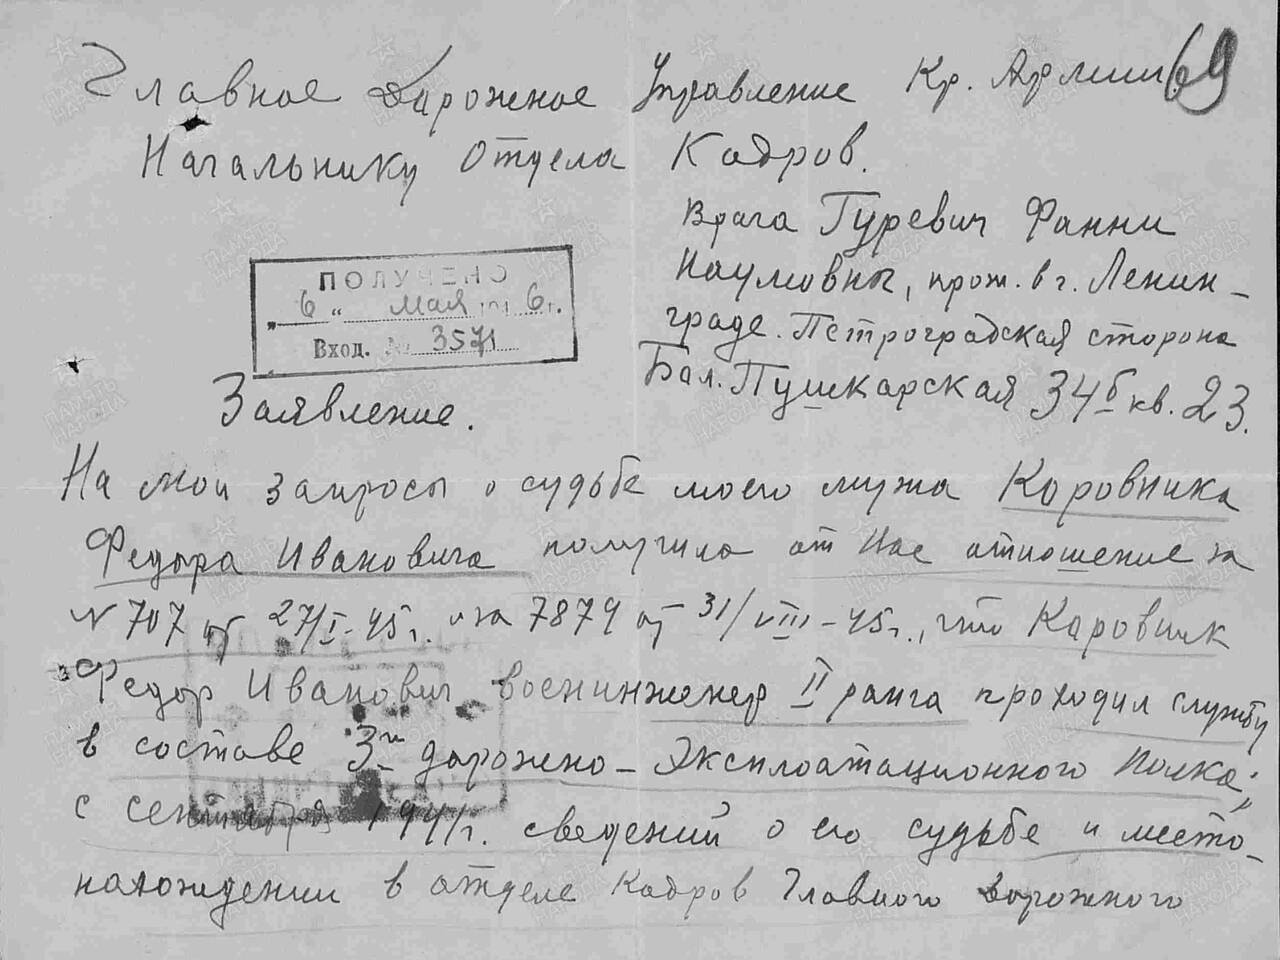 Главное Дорожное Управление Кр. Армии 69
Начальнику Отдела Кадров.
Врача Гуревич Фанни
Наумовны, прож. в г. Ленин-
граде. Петроградская сторона
Бол. Пушкарская 34б кв. 23.
ПОЛУЧЕНО
„6“ мая 1946г.
Вход. № 3571
Заявление.
На мои запросы о судьбе моего мужа Коровника
Федора Ивановича получила от Вас отношение за
№ 707 от 27/I-45г. и за 7879 от 31/VIII-45г., что Каровник
Федор Иванович военинженер II ранга проходил службу
в составе 3й дорожно-эксплоатационного полка;
с сентября 1941г. сведений о его судьбе и место-
нахождении в отделе Кадров Главного Дорожного